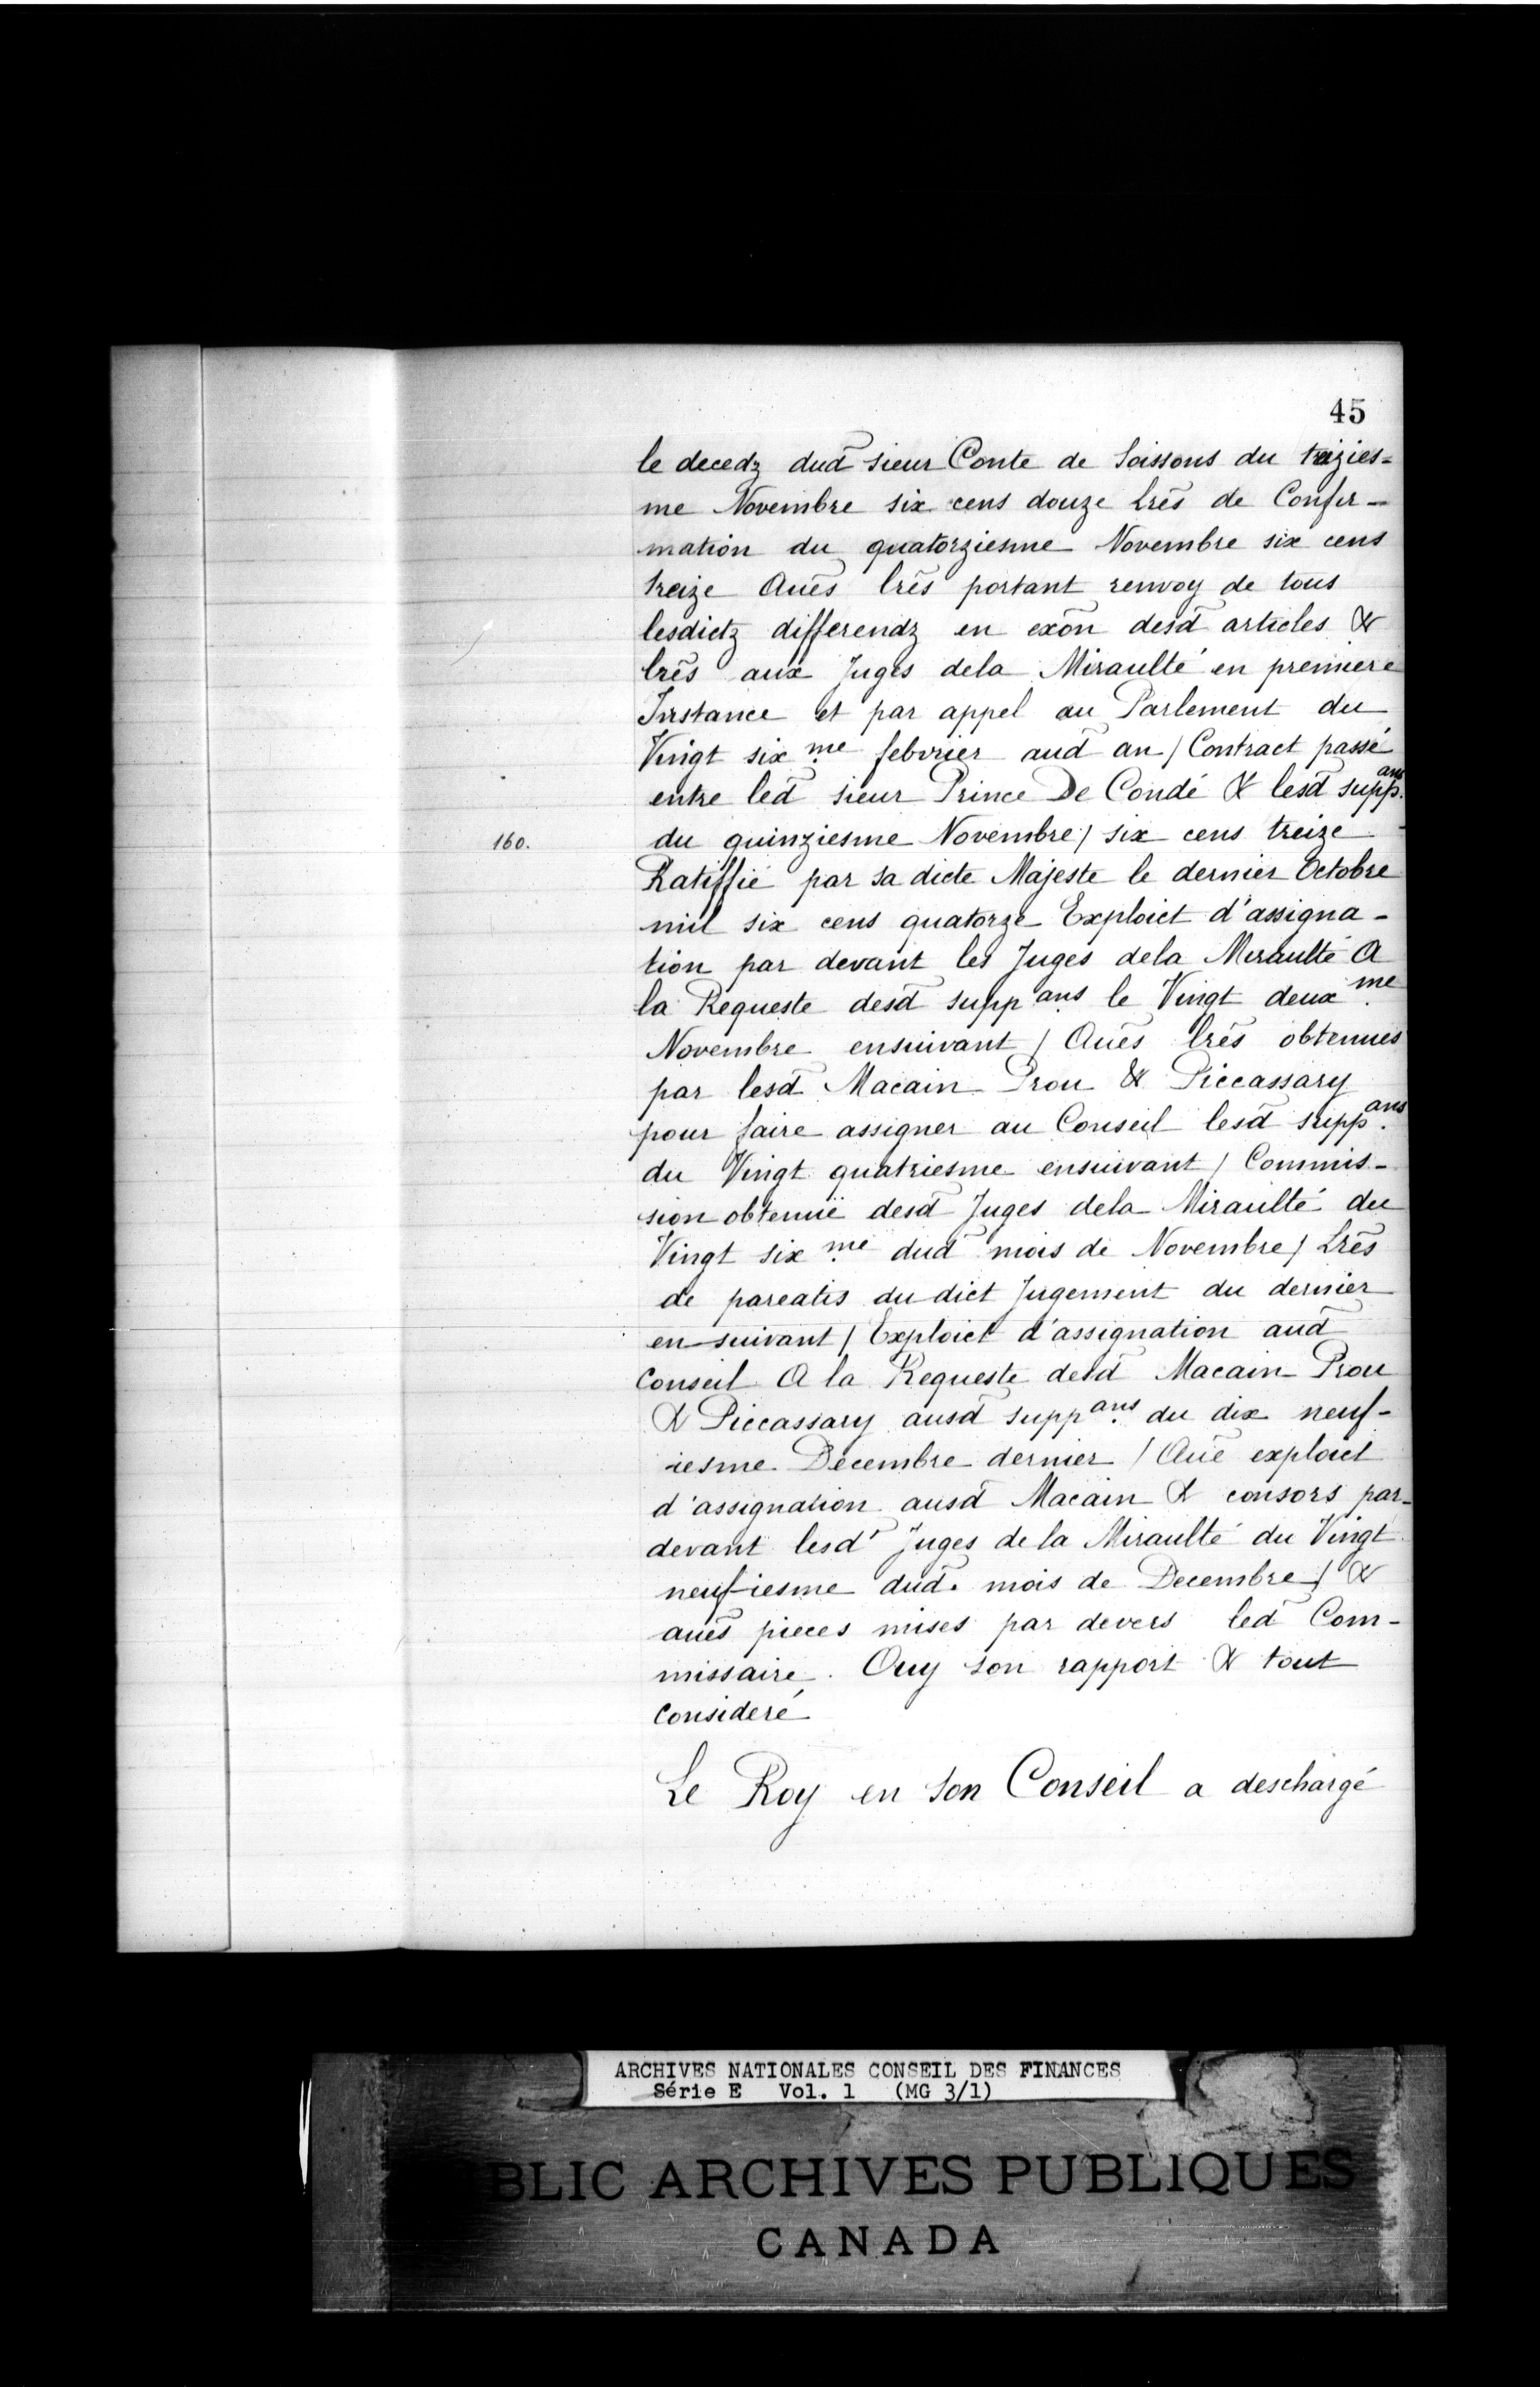 45
le decedz dud̃ sieur Conte de Soissons du treizies=
me Novembre six cens douze Lrẽs de Confir-
mation du quatorziesme Novembre six cens
treize Auẽs lrẽs portant renvoy de tous
lesdictz differendz en exõn desd̃ articles &
lrẽs aux Juges dela Miraulté en premiere
Instance et par appel au Parlement du
Vingt six me febvrier aud an / Contract passé
entre led̃ sieur Prince De Condé & lesd̃ supp.ans
160. du quinziesme Novembre / six cens treize
Ratiffié par sa dicte Majeste le dernier Octobre
mil six cens quatorze Exploict d'assigna-
tion par devant les Juges dela Miraulté A
la Requeste desd̃ supp ans le Vingt deux me
Novembre ensuivant / Auẽs lrẽs obtenues
par lesd̃ Macain Prou & Piccassary
pour faire assigner au Conseil lesd̃ supp.ans
du Vingt quatriesme ensuivant / Commis-
sion obtenuë desd̃ Juges dela Miraulté du
Vingt six me dud̃ mois de Novembre / Lrẽs
de pareatis du dict Jugement du dernier
en suivant / Exploict d'assignation aud̃
Conseil A la Requeste desd̃ Macain Prou
& Piccassary ausd̃ supp ans du dix neuf-
iesme Decembre dernier / Auẽ exploict
d'assignation ausd̃ Macain & consors par-
devant lesd' Juges de la Miraulté du Vingt
neuf-iesme dud̃. mois de Decembre / &
auẽs pieces mises par devers led̃ Com-
missaire. Ouy son rapport & tout
consideré
Le Roy en son Conseil a deschargé
ARCHIVES NATIONALES CONSEIL DES FINANCES
Série E Vol. 1 (MG 3/1)
BLIC ARCHIVES PUBLIQUES
CANADA